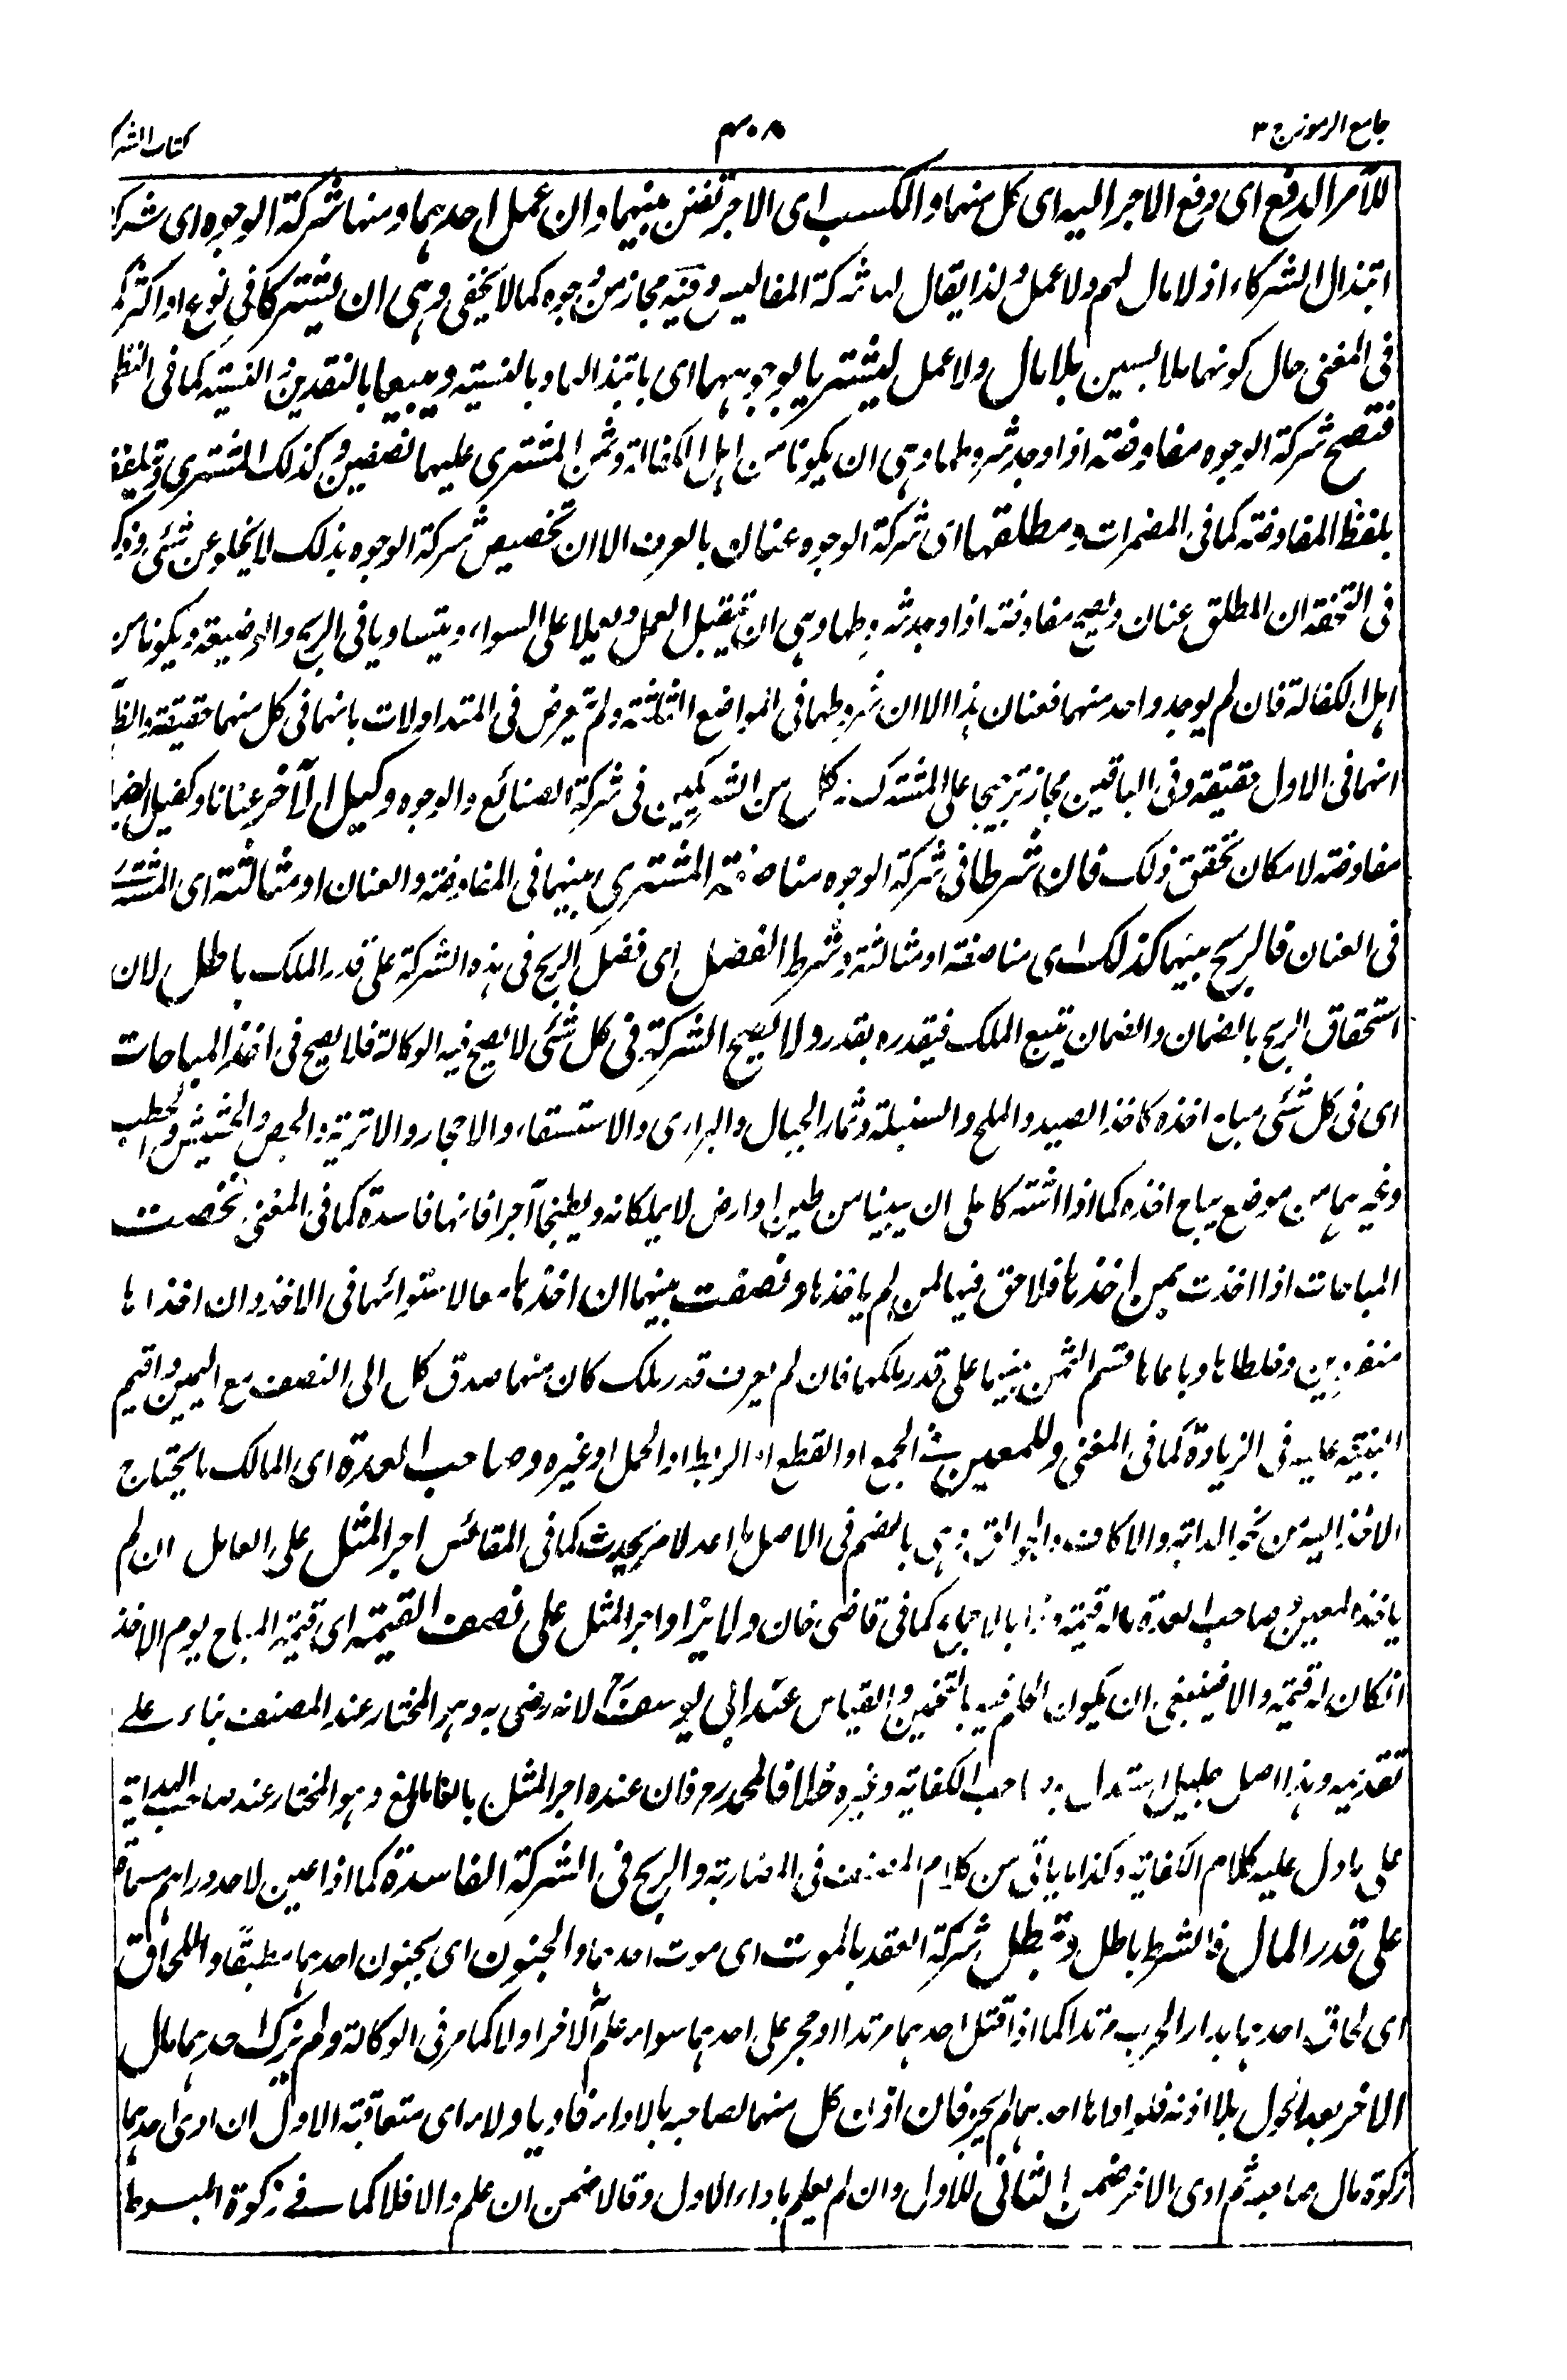 جامع الرموز ج ٣
٣٠٨
كتاب الشركة
للآمر الدفع اى دفع الاجر اليه اى كل منهما والكسب اى الاجر بينهما وان عمل احدهما ومنها شركة الوجوه اى شركة
ابتذال الشركاء اذ لا مال لهم ولا عمل ولذا يقال لها شركة المفاليس وفيه مجاز من وجوه كما لا يخفى وهى ان يشتركا فى نوع او اكثر كما
فى المغنى حال كونهما ملابسين بلا مال ولا عمل ليشتريا بوجوههما اى بابتذالهما وبالنسية ويبيعا بالنقدين والنسية كما فى النظم
فتصح شركة الوجوه مفاوضة اذا وجد شروطها وهى ان يكونا من اهل الكفالة وثمن المشترى عليهما نصفين وكذلك المشترى وتلفظا
بلفظ المفاوضة كما فى المضمرات ومطلقها اى شركة الوجوه عنان بالعرف الا ان تخصيص شركة الوجوه بذلك لا يخلو عن شئى وذكر
فى التحفة ان المطلق عنان ويصح مفاوضة اذا وجد شروطها وهى ان يتقبل العمل ويعملا على السواء ويتساويا فى الربح والوضيعة ويكونا من
اهل الكفالة فان لم يوجد واحد منهما فعنان هذا الا ان شروطهما فى المواضع الثلثة ولم يتعرض فى المتداولات بانهما فى كل منهما حقيقة والظاهر
انهما فى الاول حقيقة وفى الباقيين مجاز ترجيحا على المشترك فكل من الشريكين فى شركة الصنائع والوجوه وكيل الآخر عنانا وكفيل ايضا
مفاوضة لامكان تحقق ذلك فان شرطا فى شركة الوجوه مناصفة المشترى بينهما فى المفاوضة والعنان او مثالثة اى المشترى
فى العنان فالربح بينهما كذلك اى مناصفة او مثالثة وشرط الفضل اى فضل الربح فى هذه الشركة على قدر الملك باطل لان
استحقاق الربح بالضمان والضمان يتبع الملك فيقدره بقدر ولا يصح الشركة فى كل شئى لا يصح فيه الوكالة فلا يصح فى اخذ المباحات
اى فى كل شئى مباح اخذه كاخذ الصيد والملح والسنبلة وثمار الجبال والبرارى والاستسقاء والاحجار والاتربة والجص والحشيش والحطب
ونحوهما من موضع يباح اخذه كما اذا اشتركا على ان يبنيا من طين او ارض لا يملكانه ويطبخا آجرا فانها فاسدة كما فى المغنى نخصت
المباحات اذا اخذت بمن اخذها فلا حق فيها لمن لم ياخذها ونصفت بينهما ان اخذها معا لاستوائهما فى الاخذ وان اخذا ها
منفردين وخلطاها وباعاها قسم الثمن بينهما على قدر ملكهما فان لم يعرف قدر ملك كان منهما صدق كل الى النصف مع اليمين واقيم
البينة عليه فى الزيادة كما فى المغنى وللمعين فى الجمع او القطع او الربط او الحمل او غيره وصاحب العدة اى المالك ما يحتاج
الاخذ اليه من نحو الدابة والاكاف والجوالق وهى بالضم فى الاصل ما اعد لامر يحدث كما فى المقائس اجر المثل على العامل ان لم
ياخذه لمعين وصاحب العدة ماله قيمة وهذا بالاجماع كما فى قاضى خان ولا يزاد اجر المثل على نصف القيمة اى قيمة المباح يوم الاخذ
انكان له قيمة والا فينبغى ان يكون الحكم فيه بالتخمين والقياس عند ابى يوسف لانه رضى به وهو المختار عند المصنف بناء على
تقديمه وهذا اصل جليل استدل به صاحب الكفاية وغيره خلافا لمحمد رح فان عنده اجر المثل بالغا ما بلغ وهو المختار عند صاحب الهداية
على ما دل عليه كلام الكفاية وكذا ما ياتى من كلام المصنف فى المضاربة والربح فى الشركة الفاسدة كما اذا عين لاحد دراهم مسماة
على قدر المال فالشرط باطل وتبطل شركة العقد بالموت اى موت احدهما والجنون اى بجنون احدهما مطبقا واللحاق
اى لحاق احدهما بدار الحرب مرتدا كما اذا قتل احدهما مرتدا او حجر على احدهما سواء علم الآخر او لا كما مر فى الوكالة ولم يزك احدهما مال
الاخر بعد الحول بلا اذنه فلو اداها احدهما لم يجز فان اذن كل منهما لصاحبه بالاداء فاديا ولاء اى متعاقبة الاول ان ادى احدهما
زكوة مال صاحبه ثم ادى الاخر ضمن الثانى للاول وان لم يعلم باداء الاول وقالا ضمن ان علم والا فلا كما فى زكوة المبسوط